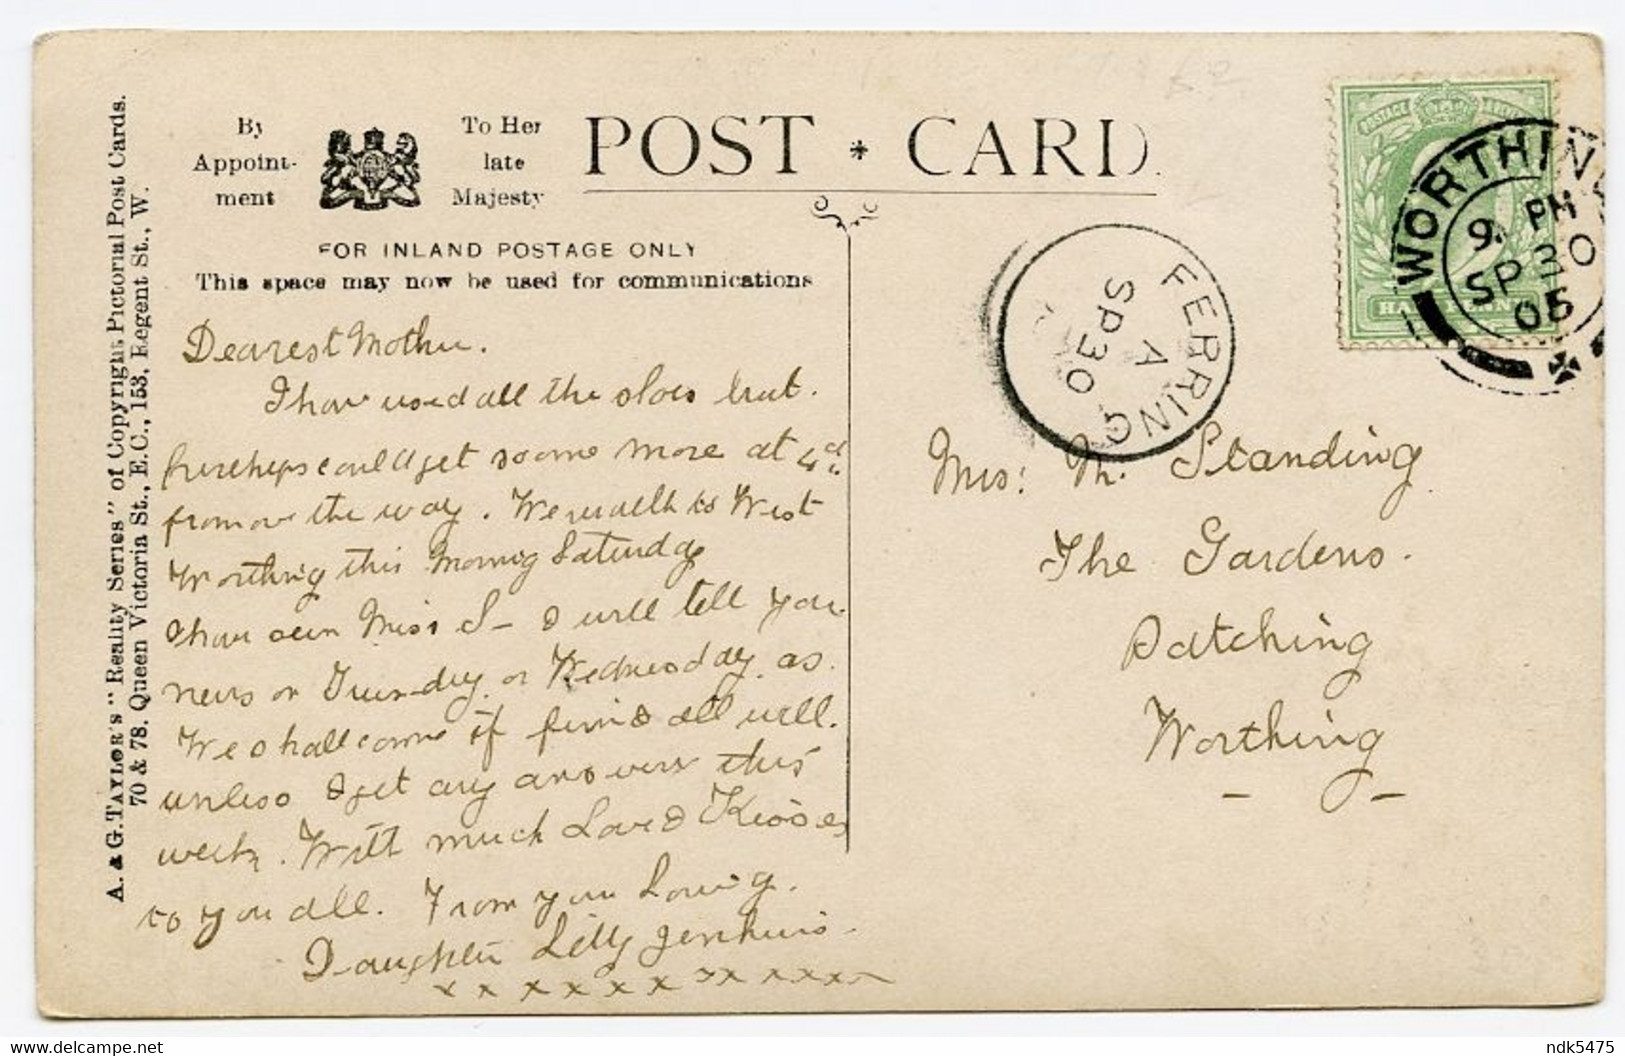 A. & G. TAYLOR'S "Reality Series" of Copyright Pictorial Post Cards.
70 & 78. Queen Victoria St., E.C., 153, Regent St., W.
By
Appoint-
ment
To Her
late
Majesty
POST * CARD.
FOR INLAND POSTAGE ONLY
This space may now be used for communications
POSTAGE
WORTHING
9 PM
SP 30
05
FERRING
A
SP 30
Dearest Mother.
I have used all the sloes but.
perhaps could get some more at 4d
from over the way. We walk to West
Worthing this Morning Saturday
I have seen Miss S- & will tell you
news on Tuesday or Wednesday as.
We shall come if fine & all well.
unless I get any answer this
week. With much Love & Kisses
to you all. From your Loving.
Daughter Lilly Jenkins.
x x x x x x x x x x x x
Mrs: M. Standing
The Gardens.
Patching
Worthing
ndk5475